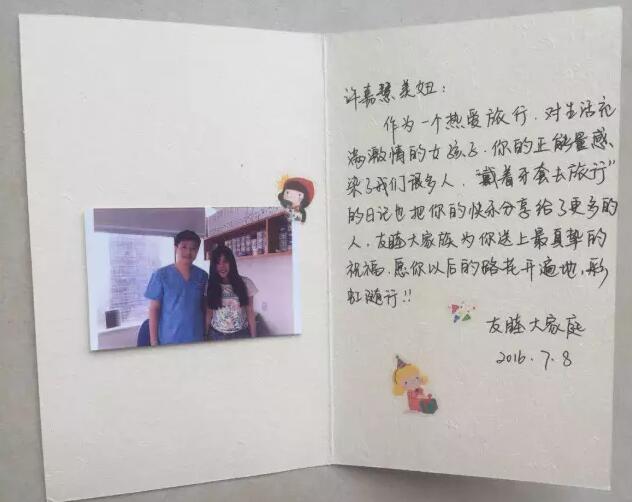 许嘉慧美妞:
作为一个热爱旅行.对生活充
满激情的女孩子.你的正能量感
染了我们很多人,"戴着牙套去旅行"
的日记也把你的快乐分享给了更多的
人,友睦大家族为你送上最真挚的
祝福.愿你以后的路花开遍地,彩
虹随行!!
友睦大家庭
2016.7.8